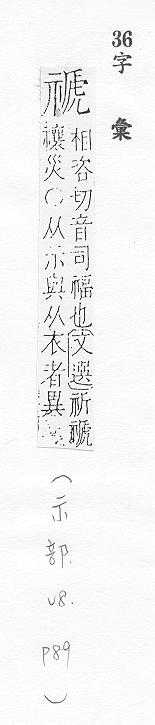 36字 彙
禠
相咨切音司福也文選祈禠
禳災○从示與从衣者異
(示部. v8. p89)